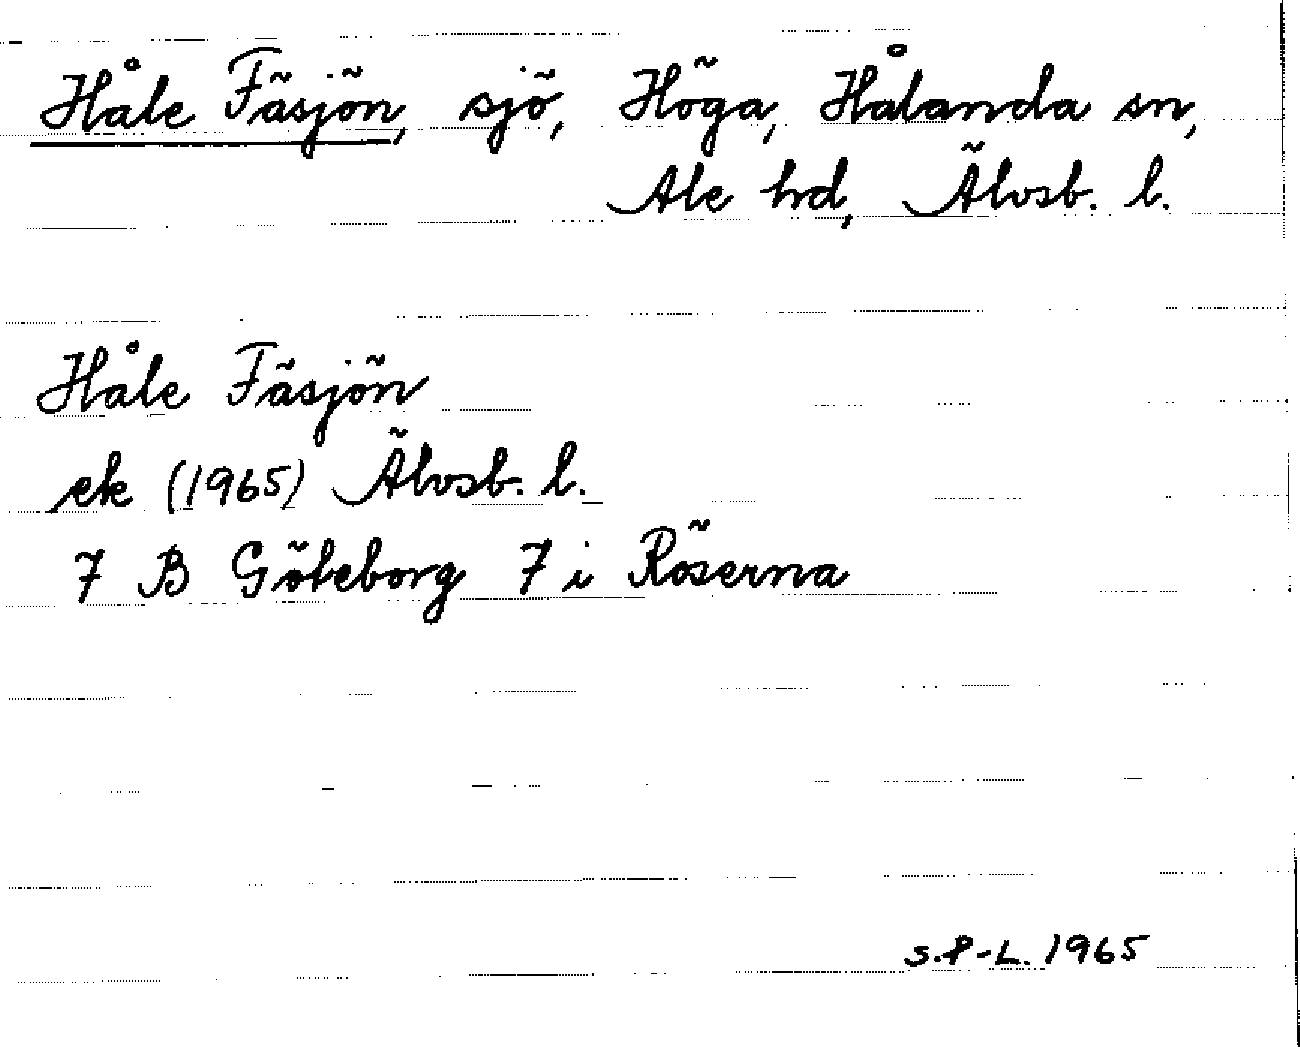 Håle Fäsjön, sjö, Höga, Hålanda sn,
Ale hd, Älvsb. l.
Håle Fäsjön
ek (1965) Älvsb. l.
7 B Göteborg 7 i Röserna
S.P-L. 1965